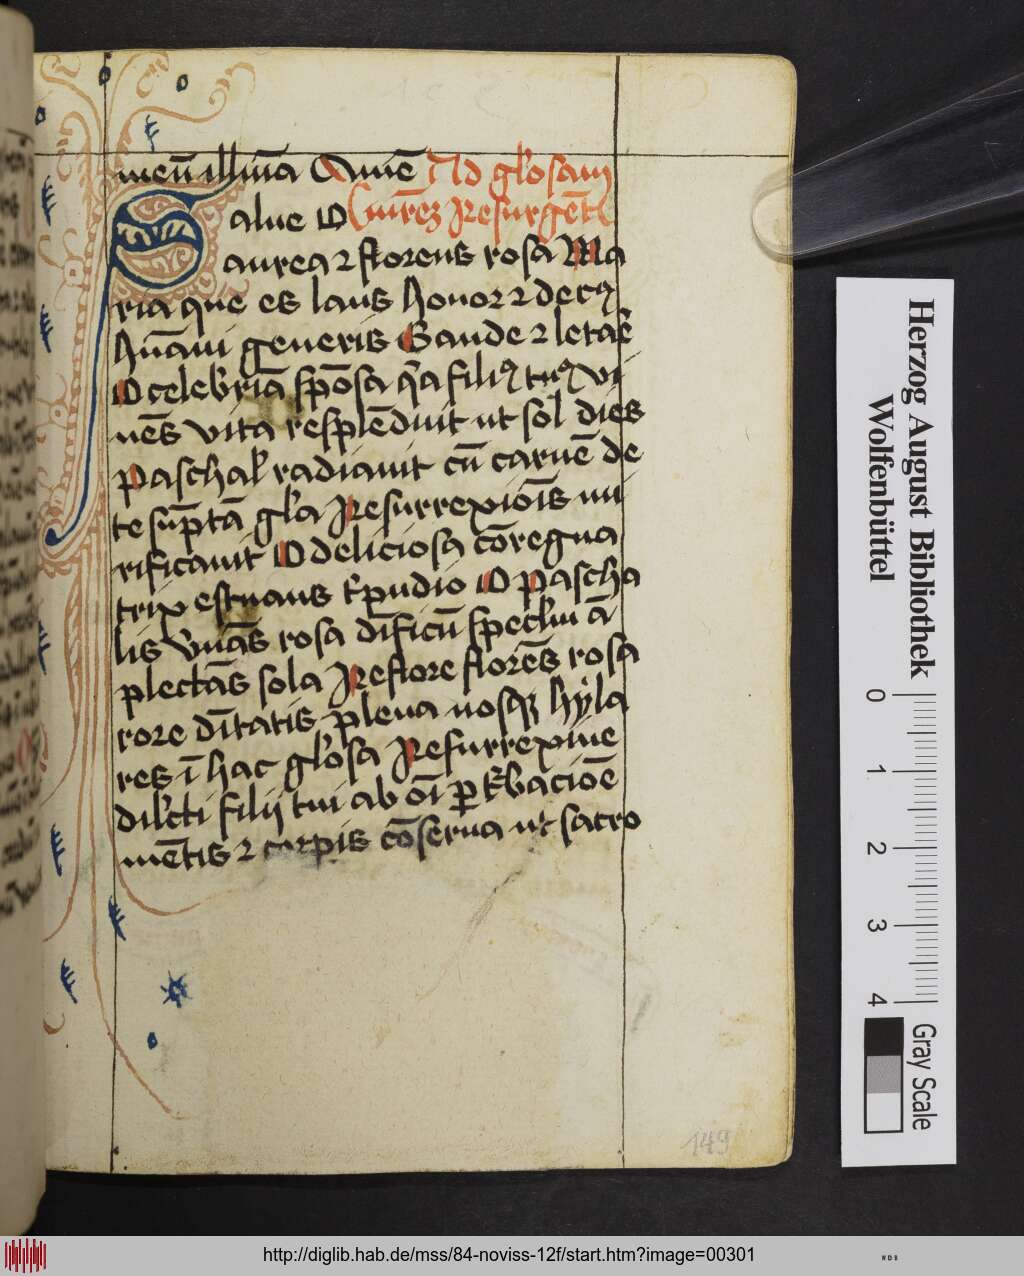 meū illmīa Amē Ad glosam
Salue O mr̄eꝫ Resurgētꝭ
aurea ⁊ florens rosa Ma
ria que es laus honor ⁊ decꝰ
hūani generis Gaude ⁊ letaē
O celebr̄iā spōsa qͣa filiꝰ tuꝰ vi
uēs vita resplēduit ut sol dies
paschaƚ radiauit cū carnē de
te sūptā gl̄a Resurrexiōīs mi
rificauit O deliciosa cōregna
trix estuans t'pudio O pascha
lis vnāₛ rosa dīficū spec̄lm ā
plectās sola Reflore florēs rosa
rore dīītatis plena nosqꝫ hyla
res ī hac gl̓osa Resurrexiōe
dil̓cti filij tui ab oī ꝑt̓bacioē
mētis ⁊ corpīs cōserua ut sacro
149
Herzog August Bibliothek
Wolfenbüttel
0 1 2 3 4
Gray Scale
http://diglib.hab.de/mss/84-noviss-12f/start.htm?image=00301